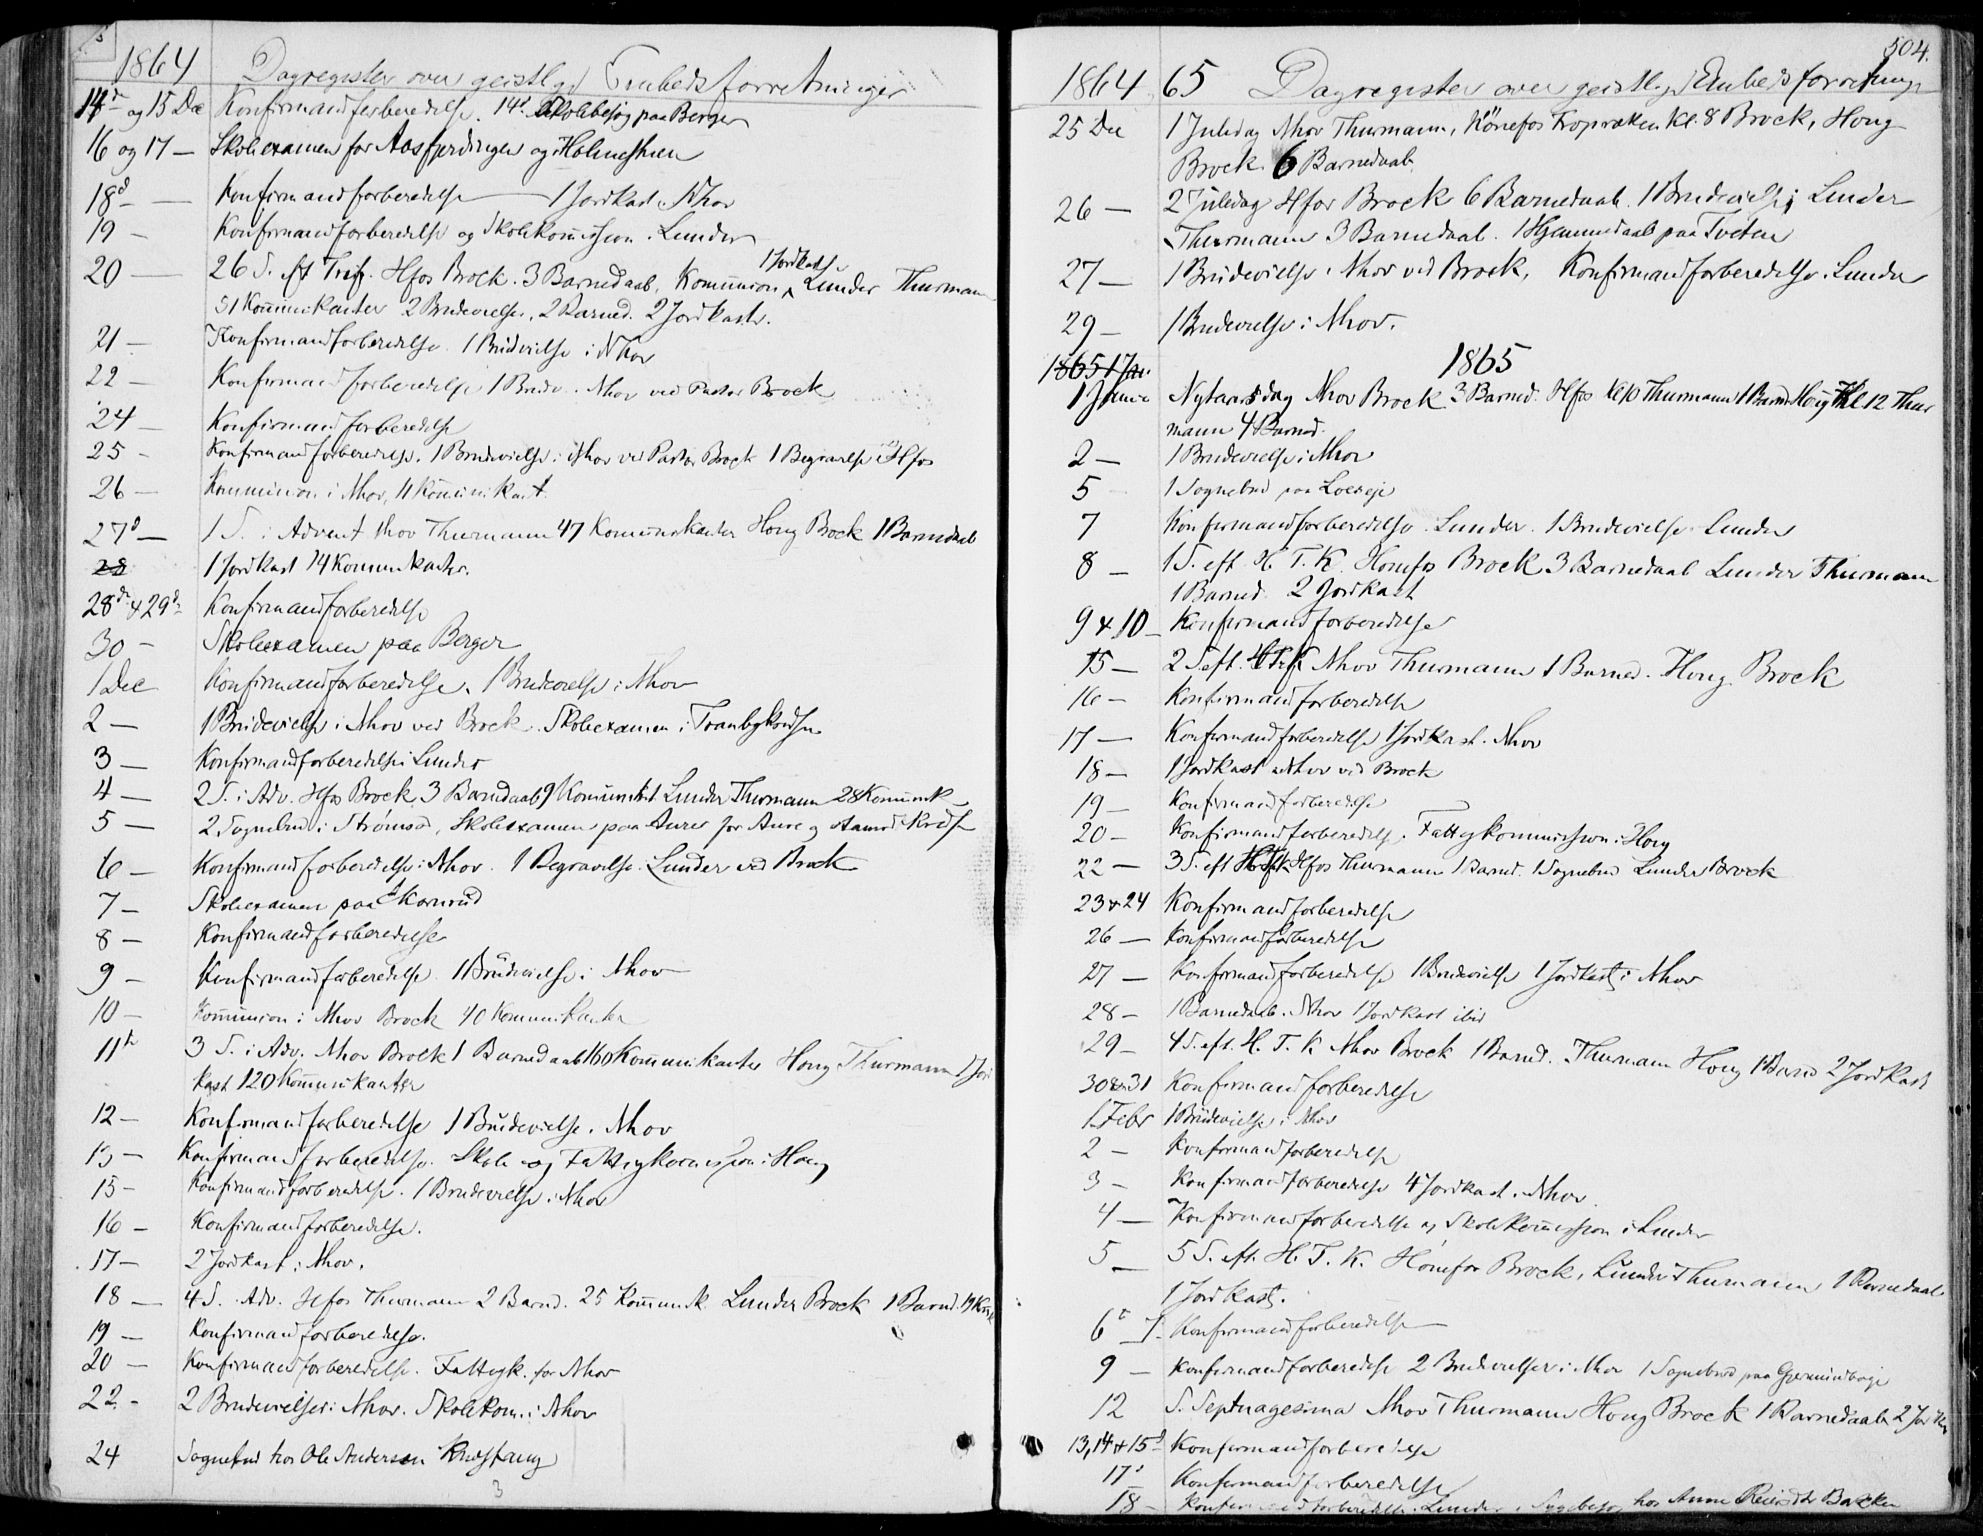 1864 Dagregister over geistlige Embedsforretninger
14de og 15 Dec Konfirmandforberedelse. 14de Skolebesøg paa Berger
16 og 17 — Skolexamen for Aasfjerdingen og Holmeskven
18d — Konfirmandforberedelse — 1 Jordkast. Nhov
19 — Konfirmandforberedelse og Skolekomission. Lunder
20 — 26 S. eft Tref. Hfos Brock. 3 Barnedaab, Kommunion, 1 Jordkast Lunder Thurmann
51 Kommunikanter 2 Brudevielse, 2 Barned. 2 Jordkast.
21 — Konfirmandforberedelse 1 Brudevielse i Nhov
22 — Konfirmandforberedelse 1 Brudv. Nhov ved Pastor Brock
24 — Konfirmandforberedelse
25 — Konfirmandforberedelse. 1 Brudevielse i Nhov ved Pastor Brock 1 Begravelse i Hfos
26 — Kommunion i Nhov, 11 Kommunikant.
27d — 1 S. i Advent Nhov Thurmann 47 Komunikanter Houg Brock 1 Barnedaab
28 1 Jordkast 14 Kommunikanter.
28de & 29d Konfirmandforberedelse
30 — Skolexamen paa Berger
1 Dec Konfirmandforberedelse. 1 Brudevielse i Nhov
2 — 1 Brudevielse i Nhov ved Brock. Skolexamen i Tranbykredsen
3 — Konfirmandforberedelse i Lunder
4 — 2 S. i Adv. Hfos Brock 3 Barnedaab 9 Komunikt Lunder Thurmann 28 Komunik
5 — 2 Sognebud i Strømsod, Skolexamen paa Aurer for Aure og Aamodt Kreds
6 — Konfirmandforberedelse i Nhov. 1 Begravelse i Lunder ved Brock
7 — Skolexamen paa Skarrud
8 — Konfirmandforberedelse
9 — Konfirmandforberedelse 1 Brudevielse i Nhov
10 — Kommunion i Nhov Brock 40 Kommunikanter
11te 3 S. i Adv. Nhov Brock 1 Barnedaab 160 Kommunikanter Houg Thurmann 1 Jord
kast 120 Kommunikanter
12 — Konfirmandforberedelse 1 Brudevielse. Nhov
13 — Konfirmandforberedelse. Skole og Fattigkomission i Houg
15 — Konfirmandforberedelse. 1 Brudevielse. Nhov
16 — Konfirmandforberedelse.
17 — 2 Jordkast i Nhov.
18 — 4 S. Adv. Hfos Thurmann 2 Barnd. 25 Kommunik Lunder Brock 1 Barnd.
19 — Konfirmandforberedelse.
20 — Konfirmandforberedelse. Fattigk. for Nhov
22 — 2 Brudevielser i Nhov. Skolekom. i Nhov
24 Sognebud hos Ole Andersen
504.
1864 65 Dagregister over geistlige Embedsforretninger
25 Dec 1 Juledag Nhov Thurmann, Hönefos Froprækn Kl. 8 Brock, Houg
Brock 6 Barnedaab
26 — 2 Juledag Hfos Brock 6 Barnedaab. 1 Brudevielse i Lunder
Thurmann 3 Barnedaab. 1 Hjemmedaab paa Tveten
27 — 1 Brudevielse i Nhov ved Brock, Konfirmandforberedelse i Lunder
29 — 1 Brudevielse i Nhov.
1865 1 Jan. 1865
1 Janua Nytaarsdag Nhov Brock 3 Barned. Hfos kl 10 Thurmann 1 Barnd. Houg Kl 12 Thur
mann 4 Barned.
2 — 1 Brudevielse i Nhov
5 — 1 Sognebud paa
7 Konfirmandforberedelse Lunder. 1 Brudevielse Lunder
8 — 1 S. eft. H. T. K. Honefos Brock 3 Barnedaab Lunder Thurmann
1 Barned. 2 Jordkast
9 & 10 — Konfirmandforberedelse
15 — 2 S eft. H T. K Nhov Thurmann 1 Barned. Houg Brock
16 — Konfirmandforberedelse
17 — Konfirmandforberedelse 1 Jordkast. Nhov
18 — 1 Jordkast Nhov ved Brock
19 — Konfirmandforberedelse
20 — Konfirmandforberedelse. Fattigkommission i Houg
22 — 3 S. eft H T K Hfos Thurmann 1 Barned. 1 Sognebud Lunder Brock
23 & 24 Konfirmandforberedelse
26 — Konfirmandforberedelse
27 — Konfirmandforberedelse 1 Brudevielse 1 Jordkast i Nhov
28 — 1 Barnedaab. Nhov 1 Jordkast ibid
29 — 4 S. eft. H. T. K Nhov Brock 1 Barnd. Thurmann Houg 1 Barnd 2 Jordkast
30 & 31 Konfirmandforberedelse
1. Febr 1 Brudevielse i Nhov
2 — Konfirmandforberedelse
3 — Konfirmandforberedelse 4 Jordkast. Nhov
4 — Konfirmandforberedelse og Skolekommission i Lunder
5 — 5 S. eft. H. T. K. Hönefos Brock, Lunder Thurmann 1 Barnedaab
1 Jordkast.
6t — 7. Konfirmandforberedelse
9 — Konfirmandforberedelse 2 Brudevielser i Nhov 1 Sognebud paa Gjermundboge
12 S. Septuagesima Nhov Thurmann Houg Brock 1 Barnedaab 2 Jordk
13, 14 & 15d Konfirmandforberedelse
17d Konfirmandforberedelse
18 — Konfirmandforberedelse Lunder. Sygebesøg hos Anne Reiersdtr Bakken